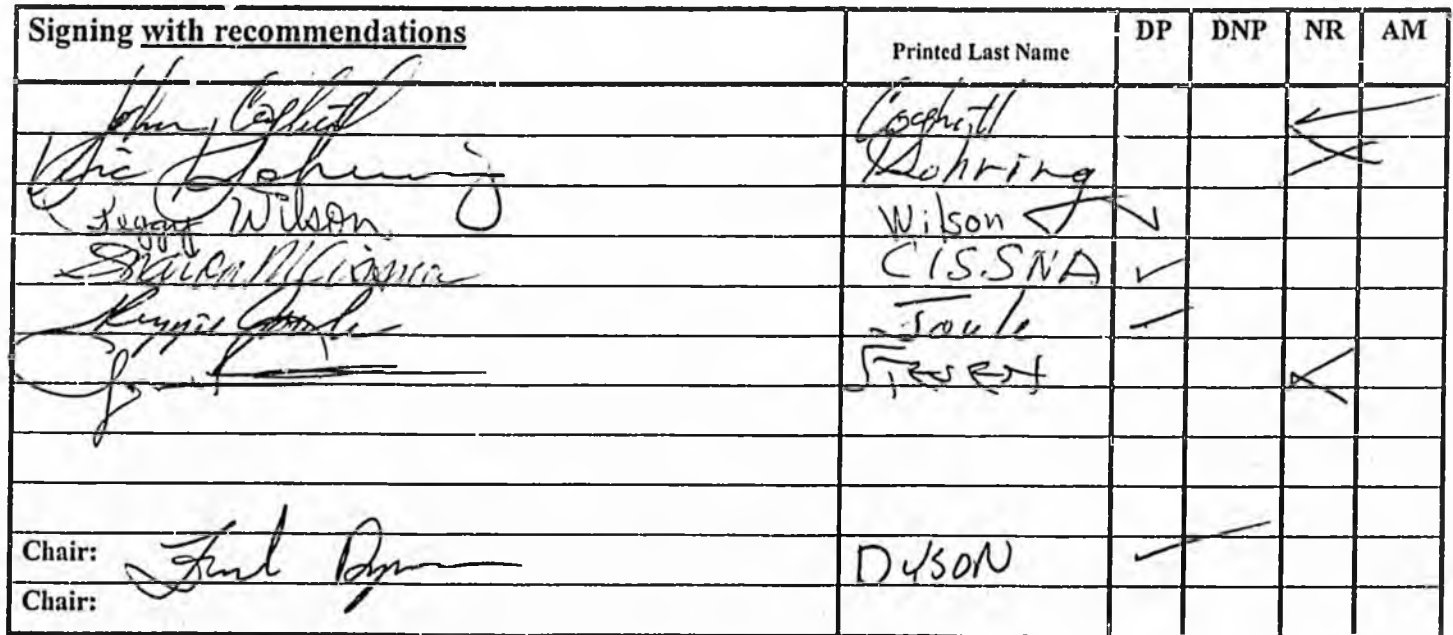 Signing with recommendations Printed Last Name DP DNP NR AM
John Coghill Coghill
Vic Kohring Kohring
Peggy Wilson Wilson ✓
Sharon M Cissna CISSNA ✓
Reggie Joule Joule ✓
Stevens
Chair: Fred Dyson DYSON ✓
Chair: